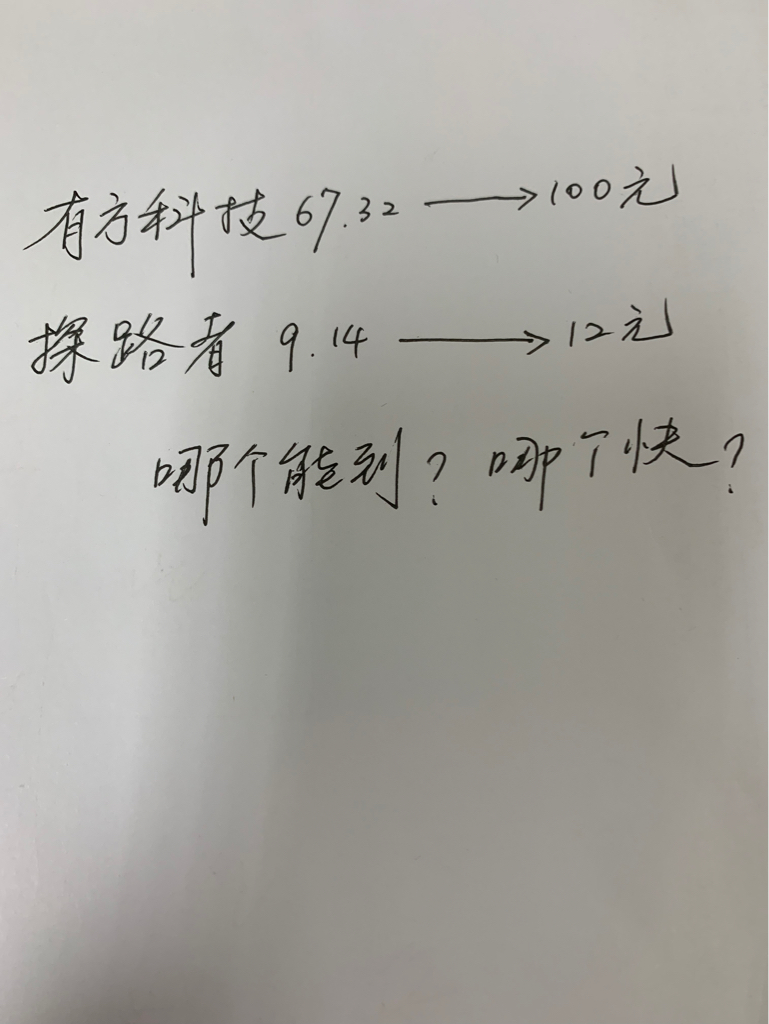 有方科技 67.32 ⟶ 100元
探路者 9.14 ⟶ 12元
哪个能到？哪个快？